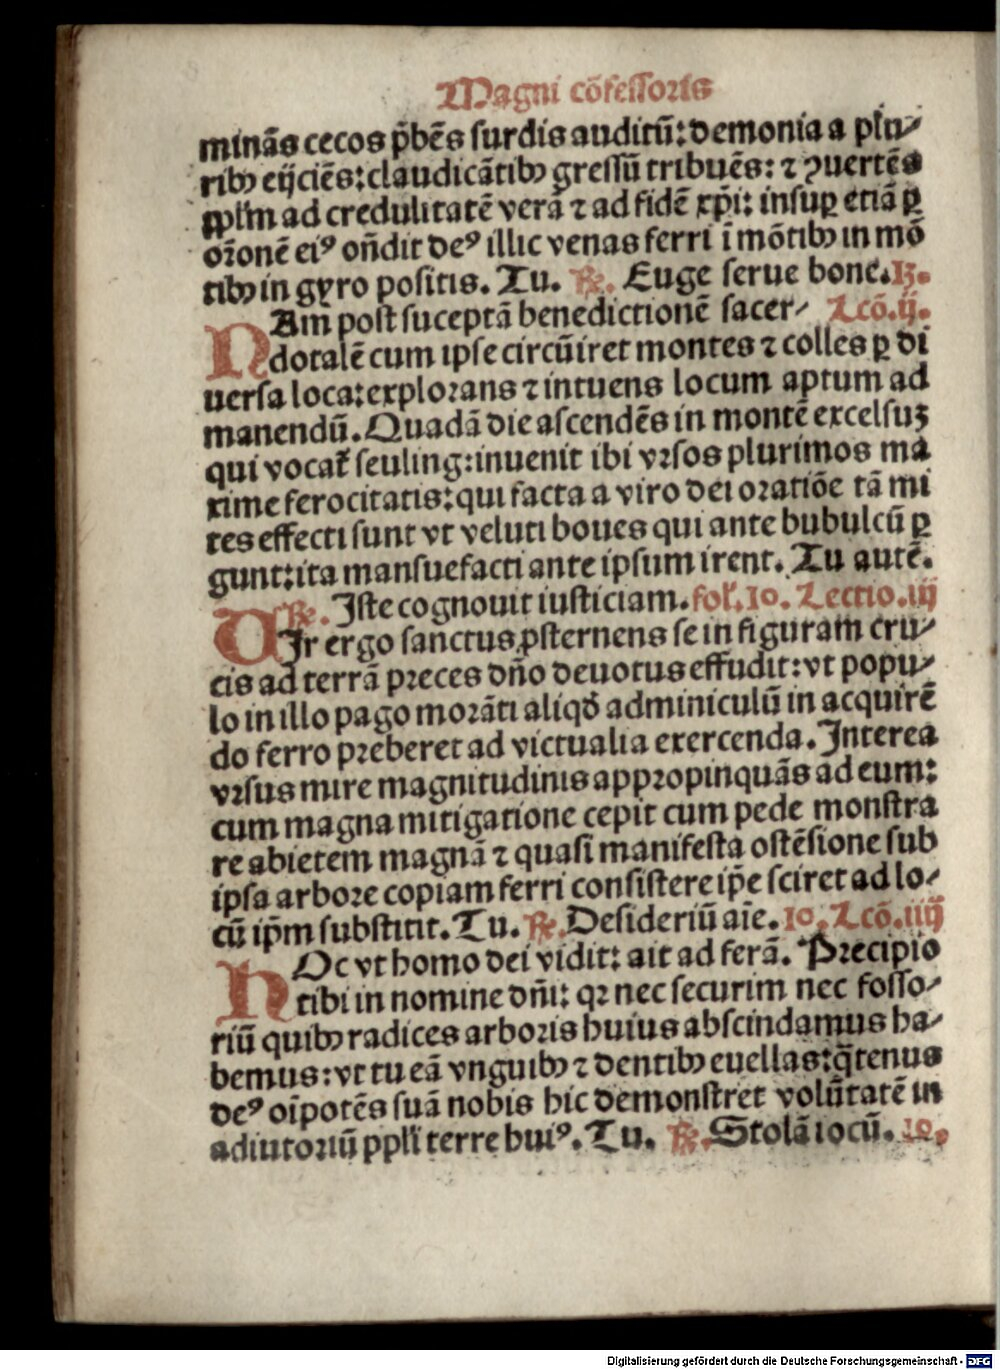 Magni cõfessoris
minãs cecos p̃bẽs surdis auditũ: demonia a plu⸗
ribꝰ eijciẽs: claudicãtibꝰ gressũ tribuẽs: ⁊ ꝯuertẽs
pplm̃ ad credulitatẽ verã ⁊ ad fidẽ xp̃i: insuꝑ etiã ꝑ
or̃onẽ eiꝰ oñdit deꝰ illic venas ferri ĩ mõtibꝰ in mõ
tibꝰ in gyro positis. Tu. ℟. Euge serue bone. 13.
NAm post suceptã benedictionẽ sacer⸗ Lcõ. ij.
dotalẽ cum ipse circũiret montes ⁊ colles ꝑ di
uersa loca: explorans ⁊ intuens locum aptum ad
manendũ. Quadã die ascendẽs in montẽ excelsuꝫ
qui vocat̃ seuling: inuenit ibi vrsos plurimos ma
xime ferocitatis: qui facta a viro dei oratiõe tã mi
tes effecti sunt vt veluti boues qui ante bubulcũ ꝑ
gunt: ita mansuefacti ante ipsum irent. Tu autẽ.
℟. Iste cognouit iusticiam. fol̃. 10. Lectio. iij
VIr ergo sanctus ꝓsternens se in figuram cru⸗
cis ad terrã preces dño deuotus effudit: vt popu⸗
lo in illo pago morãti aliqd̃ adminiculũ in acquirẽ
do ferro preberet ad victualia exercenda. Interea
vrsus mire magnitudinis appropinquãs ad eum:
cum magna mitigatione cepit cum pede monstra
re abietem magnã ⁊ quasi manifesta ostẽsione sub
ipsa arbore copiam ferri consistere ip̃e sciret ad lo⸗
cũ ip̃m substitit. Tu. ℟. Desideriũ aĩe. 10. Lcõ. iiij
HOc vt homo dei vidit: ait ad ferã. Precipio
tibi in nomine dñi: qꝛ nec securim nec fosso⸗
riũ quibꝰ radices arboris huius abscindamus ha⸗
bemus: vt tu eã vnguibꝰ ⁊ dentibꝰ euellas: q̃tenus
deꝰ oĩpotẽs suã nobis hic demonstret volũtatẽ in
adiutoriũ ppl̃i terre huiꝰ. Tu. ℟. Stolã iocũ. 10.
Digitalisierung gefördert durch die Deutsche Forschungsgemeinschaft - DFG